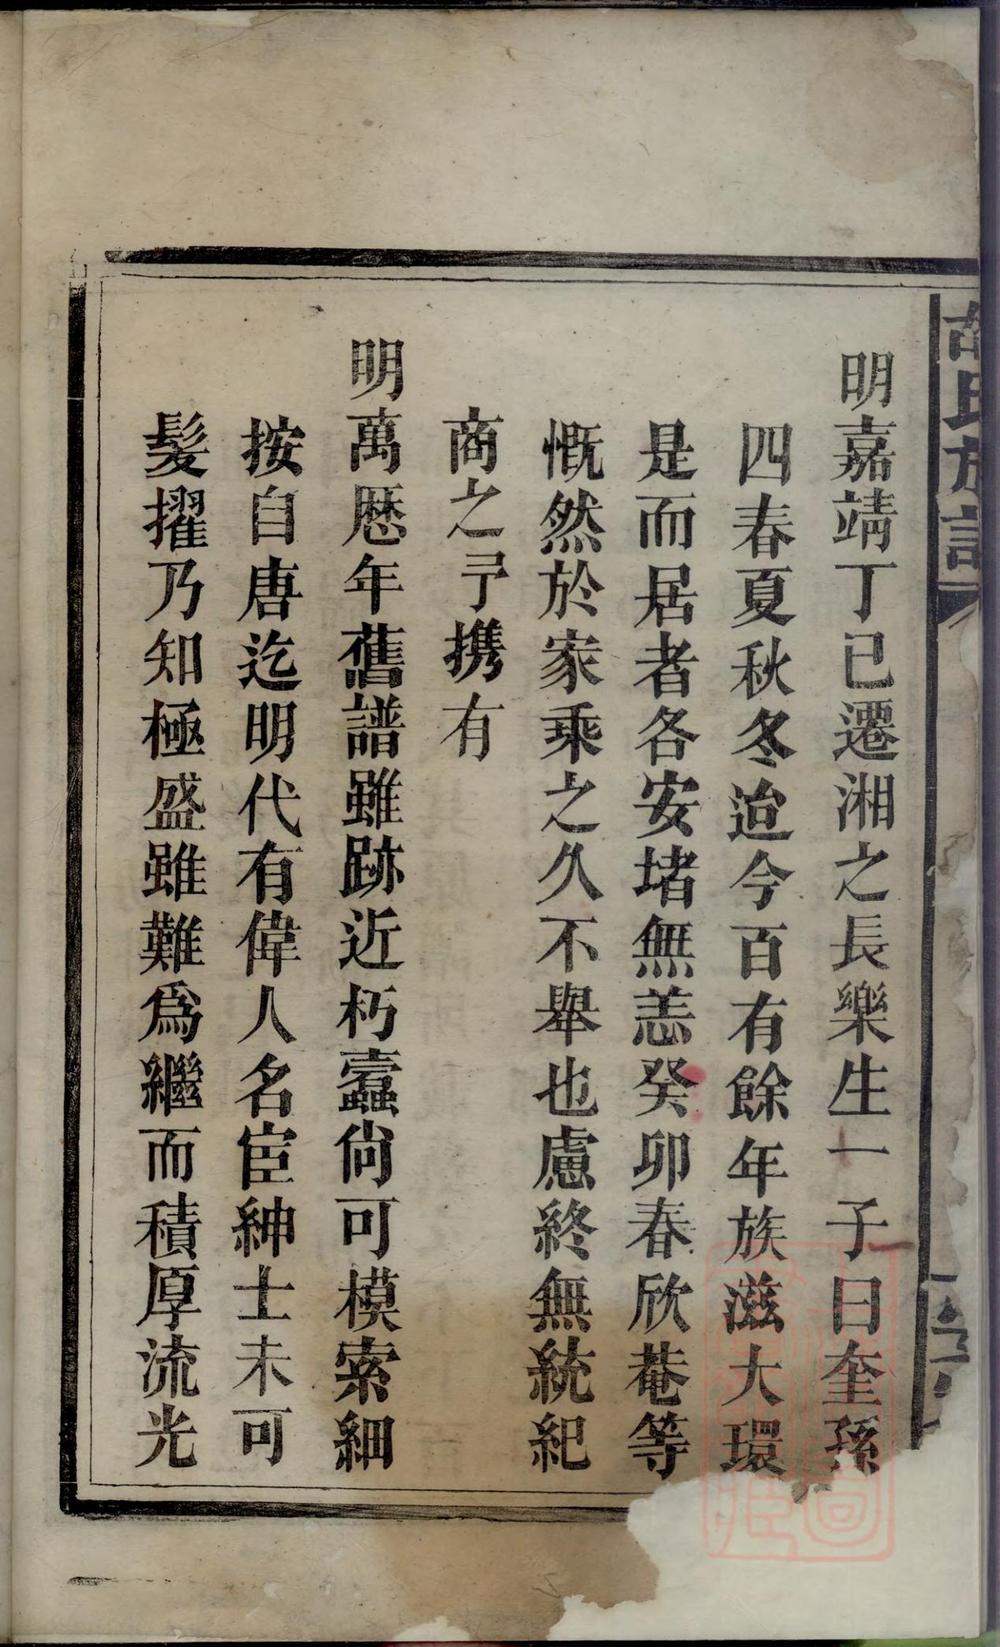 胡氏族譜
明嘉靖丁巳遷湘之長樂生一子曰奎孫
四春夏秋冬迨今百有餘年族滋大環
是而居者各安堵無恙癸卯春欣菴等
慨然於家乘之久不舉也慮終無統紀
商之予携有
明萬厯年舊譜雖跡近朽蠧尙可模索細
按自唐迄明代有偉人名宦紳士未可
髮擢乃知極盛雖難爲繼而積厚流光